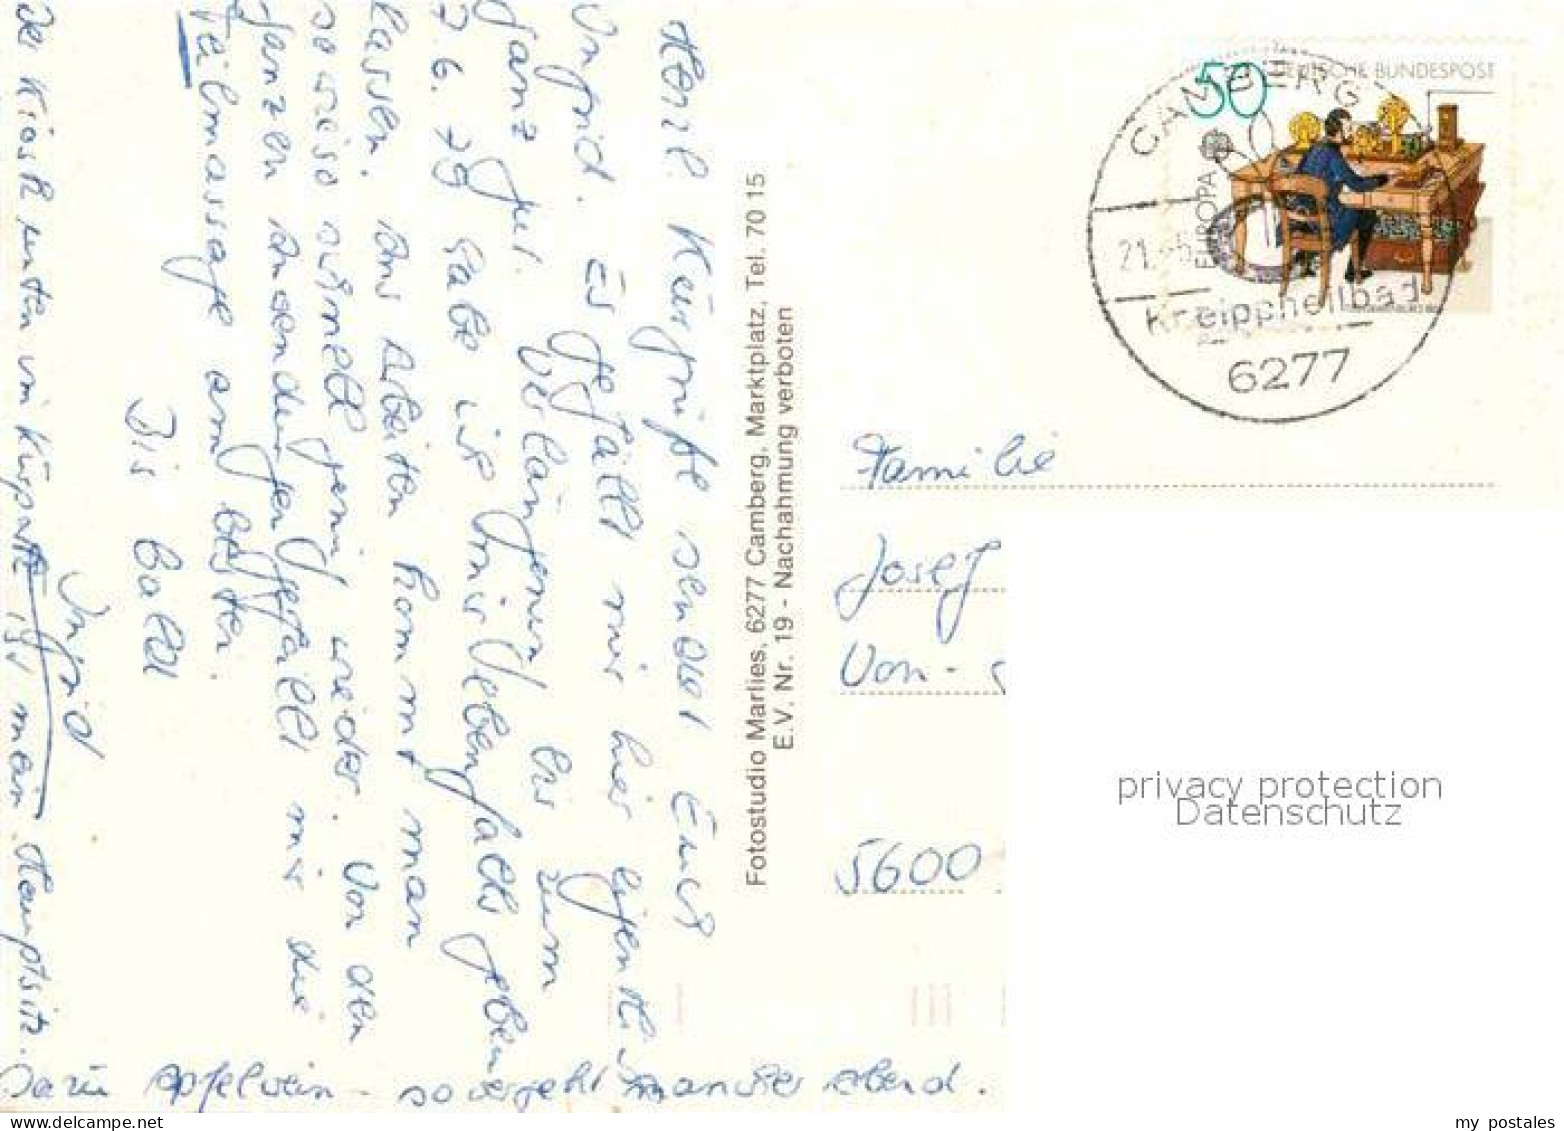 Herzl. Kurgrüße sendet Euch
Ingrid. Es gefällt mir hier eigentlich
ganz gut. Verlängerung bis zum
7. 6. 79 habe ich mir ebenfalls geben
lassen. Ans Arbeiten kommt man
sowieso schnell genug wieder. Von den
ganzen Anwendungen gefällt mir die
Teilmassage am besten.
Bis bald
Ingrid
Der Kiosk unten im Kurpark ist mein Hauptsitz.
Dazu Apfelwein - so vergeht mancher Abend.
Fotostudio Marlies, 6277 Camberg, Marktplatz, Tel. 70 15
E.V. Nr. 19 - Nachahmung verboten
50
DEUTSCHE BUNDESPOST
EUROPA
CAMBERG
21.
Kneippheilbad
6277
Familie
Josef
Von-
5600
privacy protection
Datenschutz
my postales